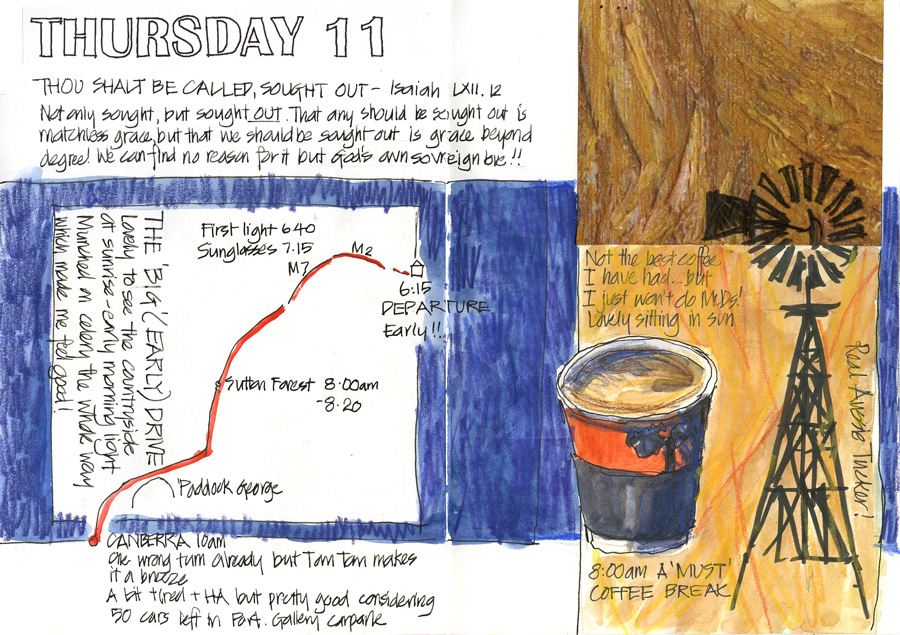 THURSDAY 11
THOU SHALT BE CALLED, SOUGHT OUT - Isaiah LXII. 12
Not only sought, but sought OUT. That any should be sought out is
matchless grace, but that we should be sought out is grace beyond
degree! We can find no reason for it but God's own sovreign love!!
THE 'BIG' (EARLY) DRIVE
Lovely to see the countryside
at sunrise - early morning light
Munched on celery the whole way
which made me feel good!
First light 6 40
Sunglasses 7.15
M7
M2
6:15
DEPARTURE
Early!!
Sutton Forest 8:00am
-8.20
'Paddock George
CANBERRA 10am
One wrong turn already but Tom Tom makes
it a breeze
A bit tired + HA but pretty good considering
50 cars left in Gallery carpark
Not the best coffee
I have had... but
I just won't do McDs!
Lovely sitting in sun
Real Aussie Tucker!
8:00am A 'MUST'
COFFEE BREAK